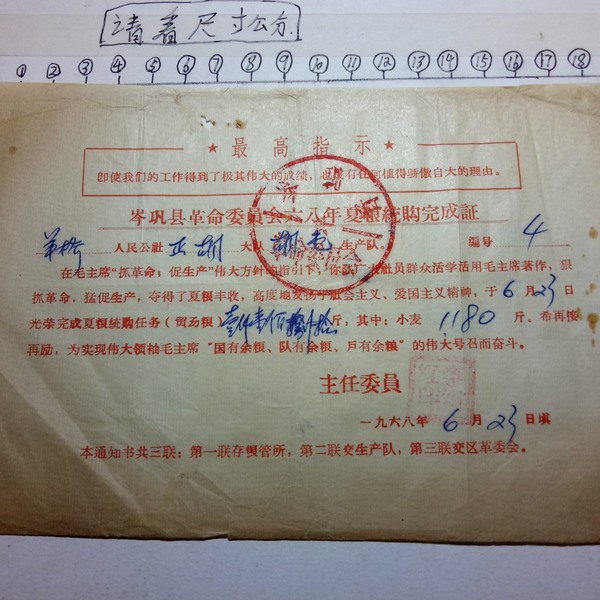 请看尺寸公分
① ② ③ ④ ⑤ ⑥ ⑦ ⑧ ⑨ ⑩ ⑪ ⑫ ⑬ ⑭ ⑮ ⑯ ⑰ ⑱
★ 最高指示 ★
即使我们的工作得到了极其伟大的成绩，也没有任何值得骄傲自大的理由。
岑巩县革命委员会六八年夏粮統购完成証
人民公社 正 大队 生产队。 编号 4
在毛主席“抓革命，促生产”伟大方针的指引下，你队广大社员群众活学活用毛主席著作，狠
抓革命，猛促生产，夺得了夏粮丰收，高度地发扬了社会主义、爱国主义精神，于6月23日
光荣完成夏粮统购任务（贸易粮）壹仟壹佰捌拾斤，其中：小麦 1180 斤。希再接
再励，为实现伟大领袖毛主席“国有余粮、队有余粮、戶有余粮”的伟大号召而奋斗。
主任委員
一九六八年 6 月 23 日填
本通知书共三联：第一联存粮管所，第二联交生产队，第三联交区革委会。